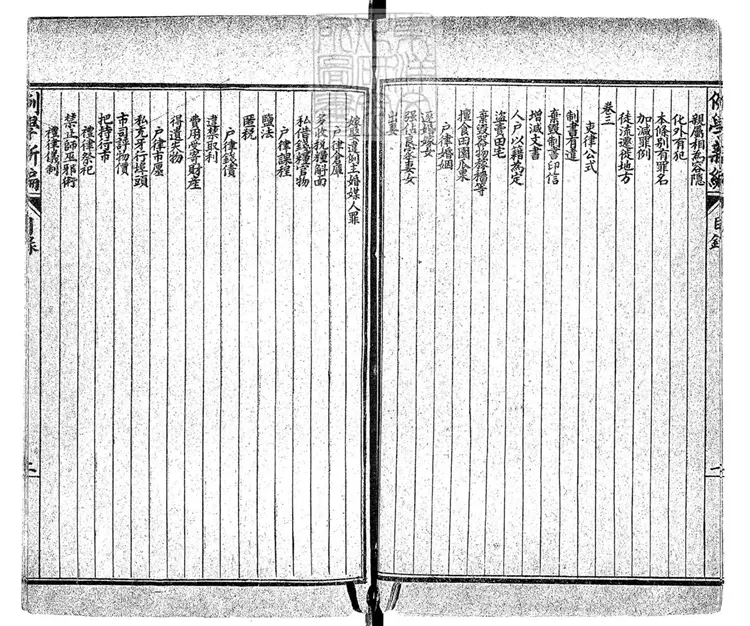 例學新編
目錄
一
親屬相為容隱
化外有犯
本條別有罪名
加減罪例
徒流遷徙地方
卷三
吏律公式
制書有違
棄毀制書印信
增減文書
人戶以籍為定
盜賣田宅
棄毀器物稼穡等
擅食田園瓜果
戶律婚姻
逐壻嫁女
強佔良家妻女
出妻
嫁娶違例主婚媒人罪
戶律倉廒
多收稅糧斛面
私借錢糧官物
戶律課程
鹽法
匿稅
戶律錢債
違禁取利
費用受寄財產
得遺失物
戶律市廛
私充牙行埠頭
市司評物價
把持行市
禮律祭祀
禁止師巫邪術
禮律儀制
例學新編
目錄
二